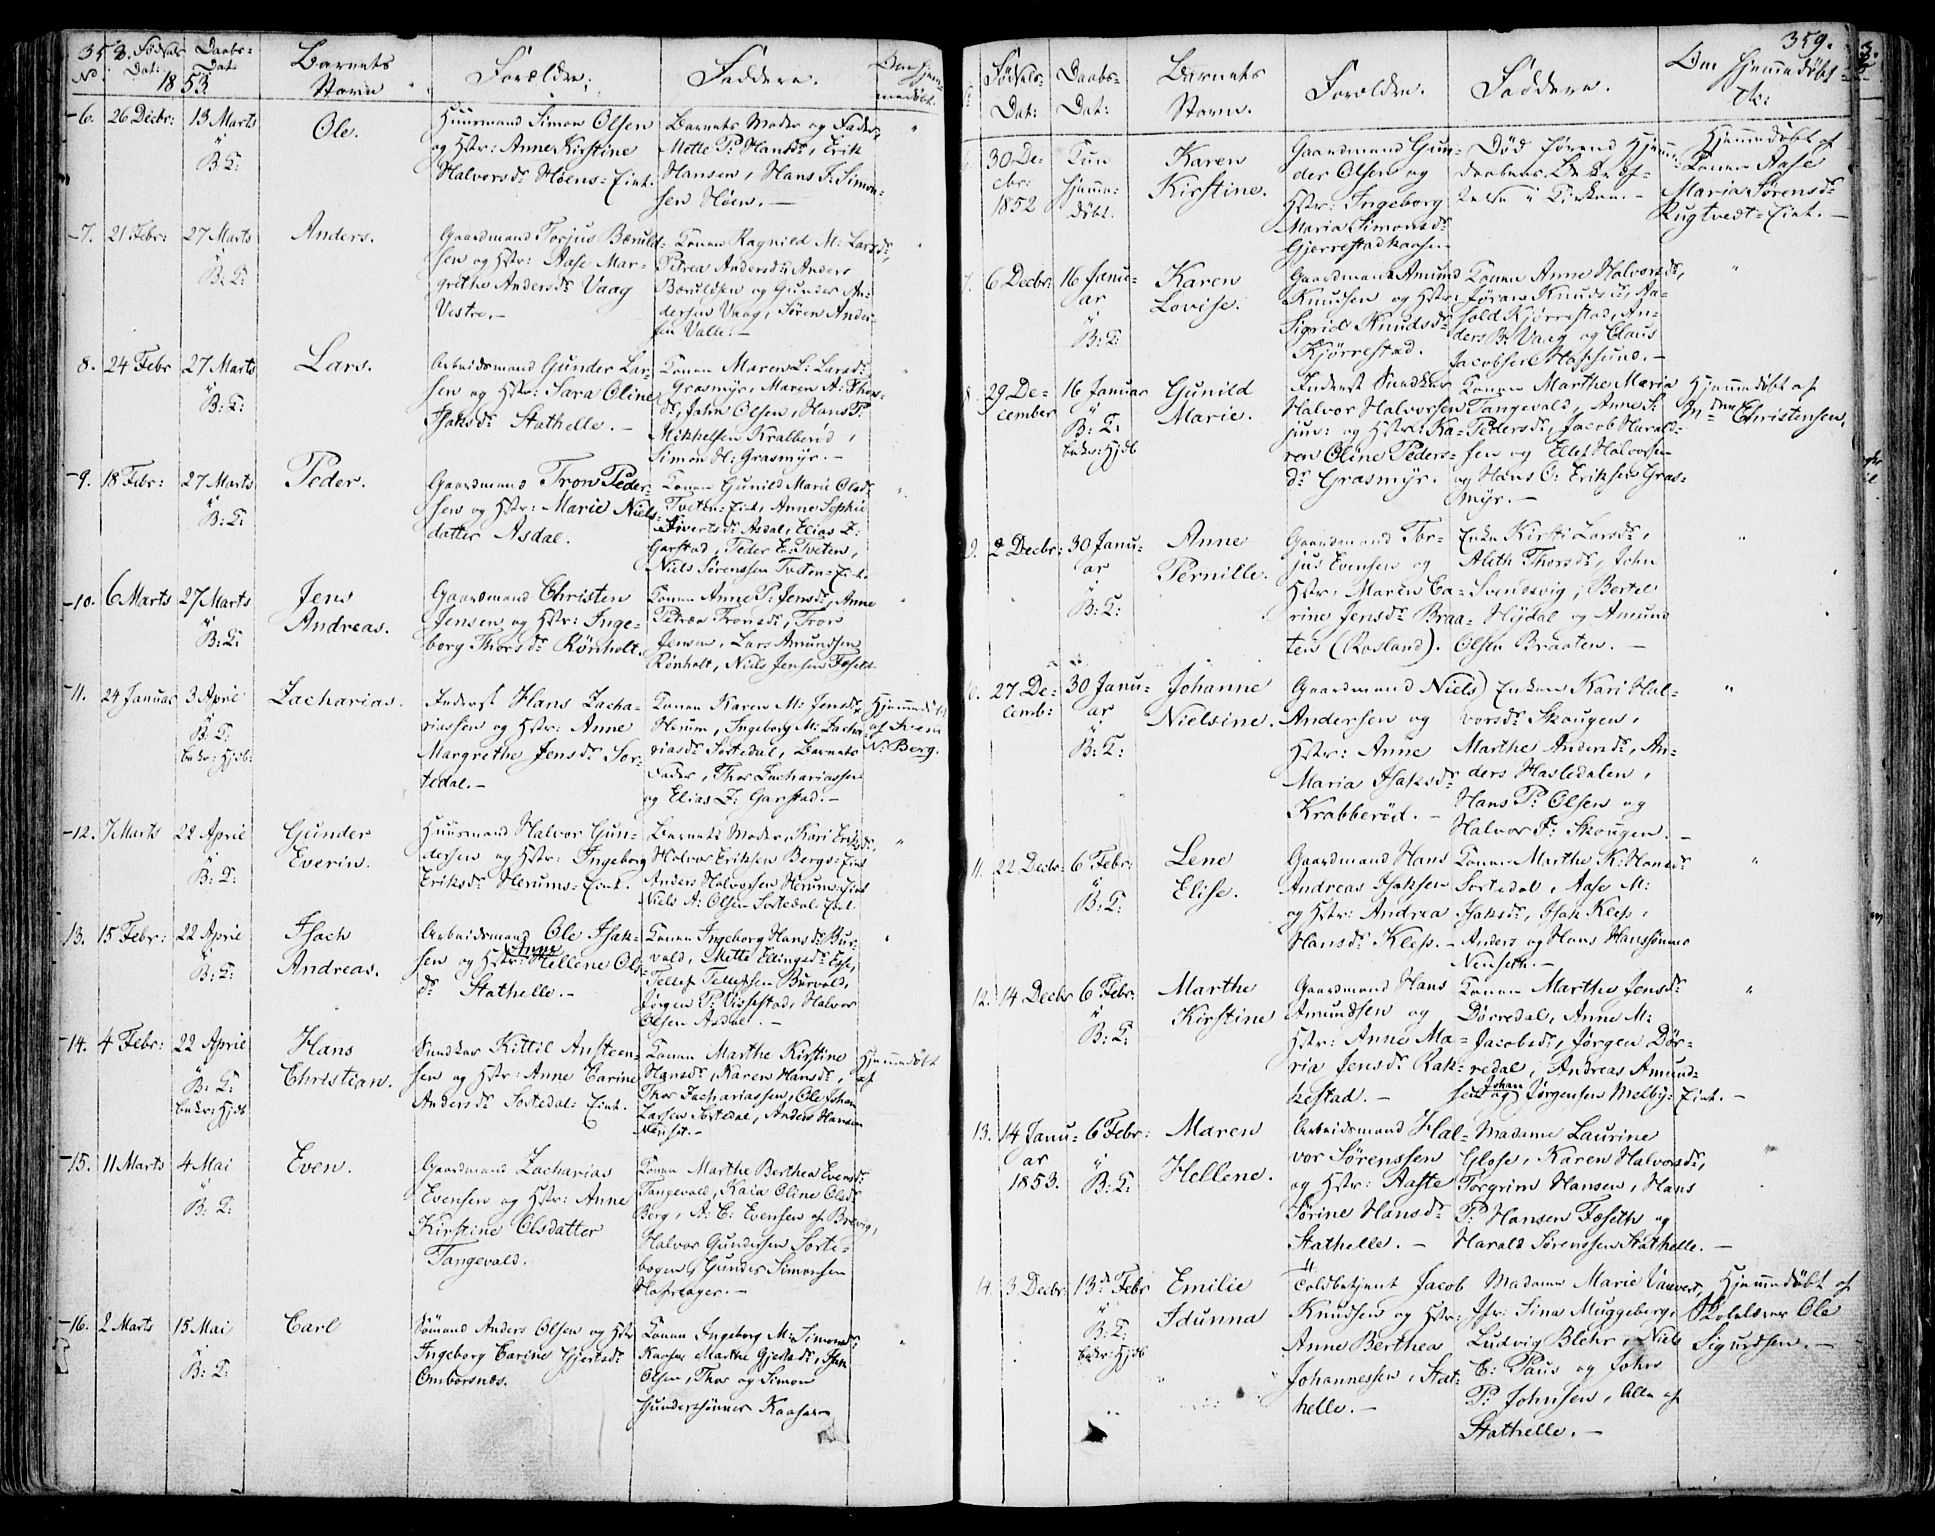 358.
No
Fødsels
Dat:
Daabs-
Dat:
1853
Barnets
Navn
Forældre.
Faddere.
6. 26 Decbr: 13 Marts
B: T:
Ole.
Huusmand Simon Olsen
og Hstr: Anne Kirstine
Halvorsdr Høens-Eiet.
Barnets Moder og Fader,
Mette P: Hansdr, Erik
Hansen, Hans S: Simon-
sen Høen. —
7. 21 Febr: 27 Marts
B: T:
Anders.
Gaardmand Torjus Beruld-
sen og Hstr: Aase Mar-
grethe Andersdr Vaag
Vestre. —
Konen Ragnild M: Larsdr,
Petrea Andersdr, Anders
Beruldsen og Gunder An-
dersen Vaag, Søren Ander-
sen Valle. —
8. 24 Febr 27 Marts
B: T:
Lars.
Arbeidsmand Gunder Lar-
sen og Hstr: Sara Oline
Isaksdr Stathelle. —
Konen Maren L: Larsdr,
Grasmyr, Maren A: Thors-
dr, John Olsen, Hans P:
Mikkelsen Krabberød,
Simon H: Grasmyr. —
9. 18 Febr: 27 Marts
B: T:
Peder.
Gaardmand Tron Peder-
sen og Hstr: Marie Niels-
datter Asdal.
Konen Gunild Marie Olsdr
Tveten-Eiet, Anne Sophie
Sivertsdr Asdal, Elias Z:
Garstad, Peder E: Tveten,
Niels Sørenssen Tveten-Eiet.
10. 6 Marts 27 Marts
B: T:
Jens
Andreas.
Gaardmand Christen
Jensen og Hstr: Inge-
borg Thorsdr Rønholt.
Konen Anne P: Jensdr, Anne
Petrea Tronsdr, Tron
Jensen, Lars Amundsen
Rønholt, Niels Jensen Foseth
11. 24 Januar 3 April
B: T:
bekr: Hjdb:
Zacharias.
Inderst Hans Zacha-
riassen og Hstr: Anne
Margrethe Jensdr Sor-
tedal. —
Konen Karen M: Jensdr
Herum, Ingeborg M: Zacha-
riasdr Sortedal, Barnets
Fader, Thor Zachariassen
og Elias Z: Garstad. —
Hjemmedøbt
af
N: Berg.
12. 7 Marts 22 April
B: T:
Gunder
Everin.
Huusmand Halvor Gun-
dersen og Hstr: Ingeborg
Eriksdr Herums-Eiet.
Barnets Moder, Kari Eriksdr,
Halvor Eriksen Bergs-Eiet
Anders Halvorsen Herums-Eiet
Niels A: Olsen Sortedal-Eiet.
13. 15 Febr: 22 April
B: T:
Isach
Andreas.
Arbeidsmand Ole Isak-
sen og Hstr: Anne Hellene Ols-
dr Stathelle. —
Konen Ingeborg Hansdr Bur-
vald, Mette Ellingsdr
Tellef Tellefsen Burvald,
Jørgen P: Vissestad, Halvor
Olsen Asdal. —
14. 4 Febr: 22 April
B: T:
bekr: Hjdb
Hans
Christian.
Snedker Kittil Ansteen-
sen og Hstr: Anne Carine
Andersdr Sortedal-Eiet.
Konen Marthe Kirstine
Hansdr, Karen Hansdr,
Thor Zachariassen, Ole Johan
Larsen Sortedal, Anders Hansen
Nenset. —
Hjemmedøbt
af
15. 11 Marts 4 Mai
B: T:
Even.
Gaardmand Zacharias
Evensen og Hstr: Anne
Kirstine Olsdatter
Tangevald.
Konen Marthe Berthea Evensdr
Tangevald, Kaia Oline Olsdr
Berg, A: C: Evensen af Brevig,
Halvor Gundersen Sorte-
bogen, Gunder Simonsen
16. 2 Marts 15 Mai
B: T:
Carl
Sømand Anders Olsen og Hstr
Ingeborg Carine Gjertsdr
Omborsnes.
Konen Ingeborg M: Simonsdr
Kaasa, Marthe
Olsen, Thor og Simon
Gunderssønner Kaasa. —
359.
Fødsels-
Dat:
Daabs-
Dat:
Barnets
Navn.
Forældre.
Faddere.
Om Hjemmedøbt
etc:
30 De-
cbr:
1852
Kun
hjemme-
døbt.
Karen
Kirstine.
Gaardmand Gun-
der Olsen og
Hstr: Ingeborg
Maria Simonsdr
Gjerrestadkaasen
Død førend Hjemme-
daabens Bekræf-
telse i Kirken. —
Hjemmedøbt af
Konen Aase
Maria Sørensdr
Rugtvedt-Eiet. —
7. 6 Decbr: 16 Janu-
ar
B: T:
Karen
Lovise.
Gaardmand Amund
Knudsen og Hstr:
Sigrid Knudsdr
Kjørrestad.
Konen Anne Halvorsdr,
Jøran Knudsdr, Aa-
sold Kjørrestad, An-
ders B: Vaag og Claus
Jacobsen Hafsund. —
8 29 De-
cember
16 Januar
B: T:
bekr: Hjdb
Gunild
Marie.
Inderst Snedker
Halvor Halvorsen
jun: og Hstr: Ka-
ren Oline Peders-
dr Grasmyr.
Konen Marthe Maria
Tangevald, Anne S:
Pedersdr, Jacob Harald-
sen og Ellef Halvorsen
og Hans O: Eriksen Gras-
myr. —
Hjemmedøbt af
Mdme Christensen.
9. 2 Decbr: 30 Janu-
ar
B: T:
Anne
Pernille.
Gaardmand Tor-
jus Evensen og
Hstr: Maren Ca-
rine Jensdr Braa-
ten (Rosland).
Enke Kirsti Larsdr,
Alith Thorsdr, John
Svendsvig, Bertel
Hydal og Amund
Olsen Braaten. —
27 De-
cemb:
30 Janu-
ar
B: T:
Johanne
Nielsine.
Gaardmand Niels
Andersen og
Hstr: Anne
Maria Isaksdr
Krabberød. —
Enken Kari Hal-
vorsdr Skougen,
Marthe Andersdr, An-
ders Hasledalen,
Hans P: Olsen og
Halvor J: Skougen. —
11. 22 Decbr: 6 Febr:
B: T:
Lene
Elise.
Gaardmand Hans
Andreas Isaksen
og Hstr: Andrea
Hansdr Kleps. —
Konen Marthe K: Hansdr
Sortedal, Aase M:
Isaksdr, Isak Kleps,
Anders og Hans Hanssønner
Nenseth. —
12. 14 Decbr 6 Febr:
B: T:
Marthe
Kirstine
Gaardmand Hans
Amundsen og
Hstr: Anne Ma-
ria Jensdr Rak-
kestad. —
Konen Marthe Jensdr
Dørredal, Anne M:
Jacobsdr, Jørgen Dør-
redal, Andreas Amund-
sen og Johan Jørgensen Melby-Eiet. —
13. 14 Janu-
ar
1853.
6 Febr:
B: T:
Maren
Hellene.
Arbeidsmand Hal-
vor Sørenssen
og Hstr: Aaste
Sørine Hansdr
Stathelle. —
Madame Laurine
Glose, Karen Halvorsdr,
Torgrim Hansen, Hans
P: Hansen Foseth og
Harald Sørenssen Stathelle. —
14. 3 Decbr 13de Febr
B: T:
bekr: Hjdb
Emilie
Idunna
Toldbetjent Jacob
Knudsen og Hstr:
Anne Berthea
Johannessen, Stat-
helle. —
Madame Marie Vauvert,
Jfr: Sina Muggeberg,
Ludvig Blehr, Niels
C: Paus og Johs
P: Johnsen, Alle af
Stathelle. —
Hjemmedøbt af
Skolelærer Ole
Sigurdsen. —